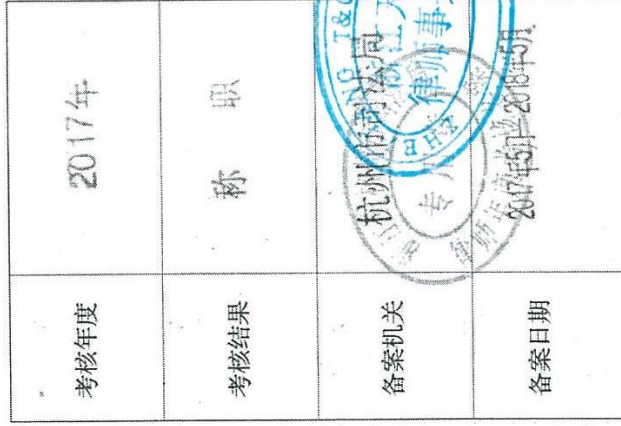 考核年度
2017年
考核结果
称 职
备案机关
杭州市司法局
备案日期
2017年5月-2018年5月
律师事
专用
ZHE
NG T&C